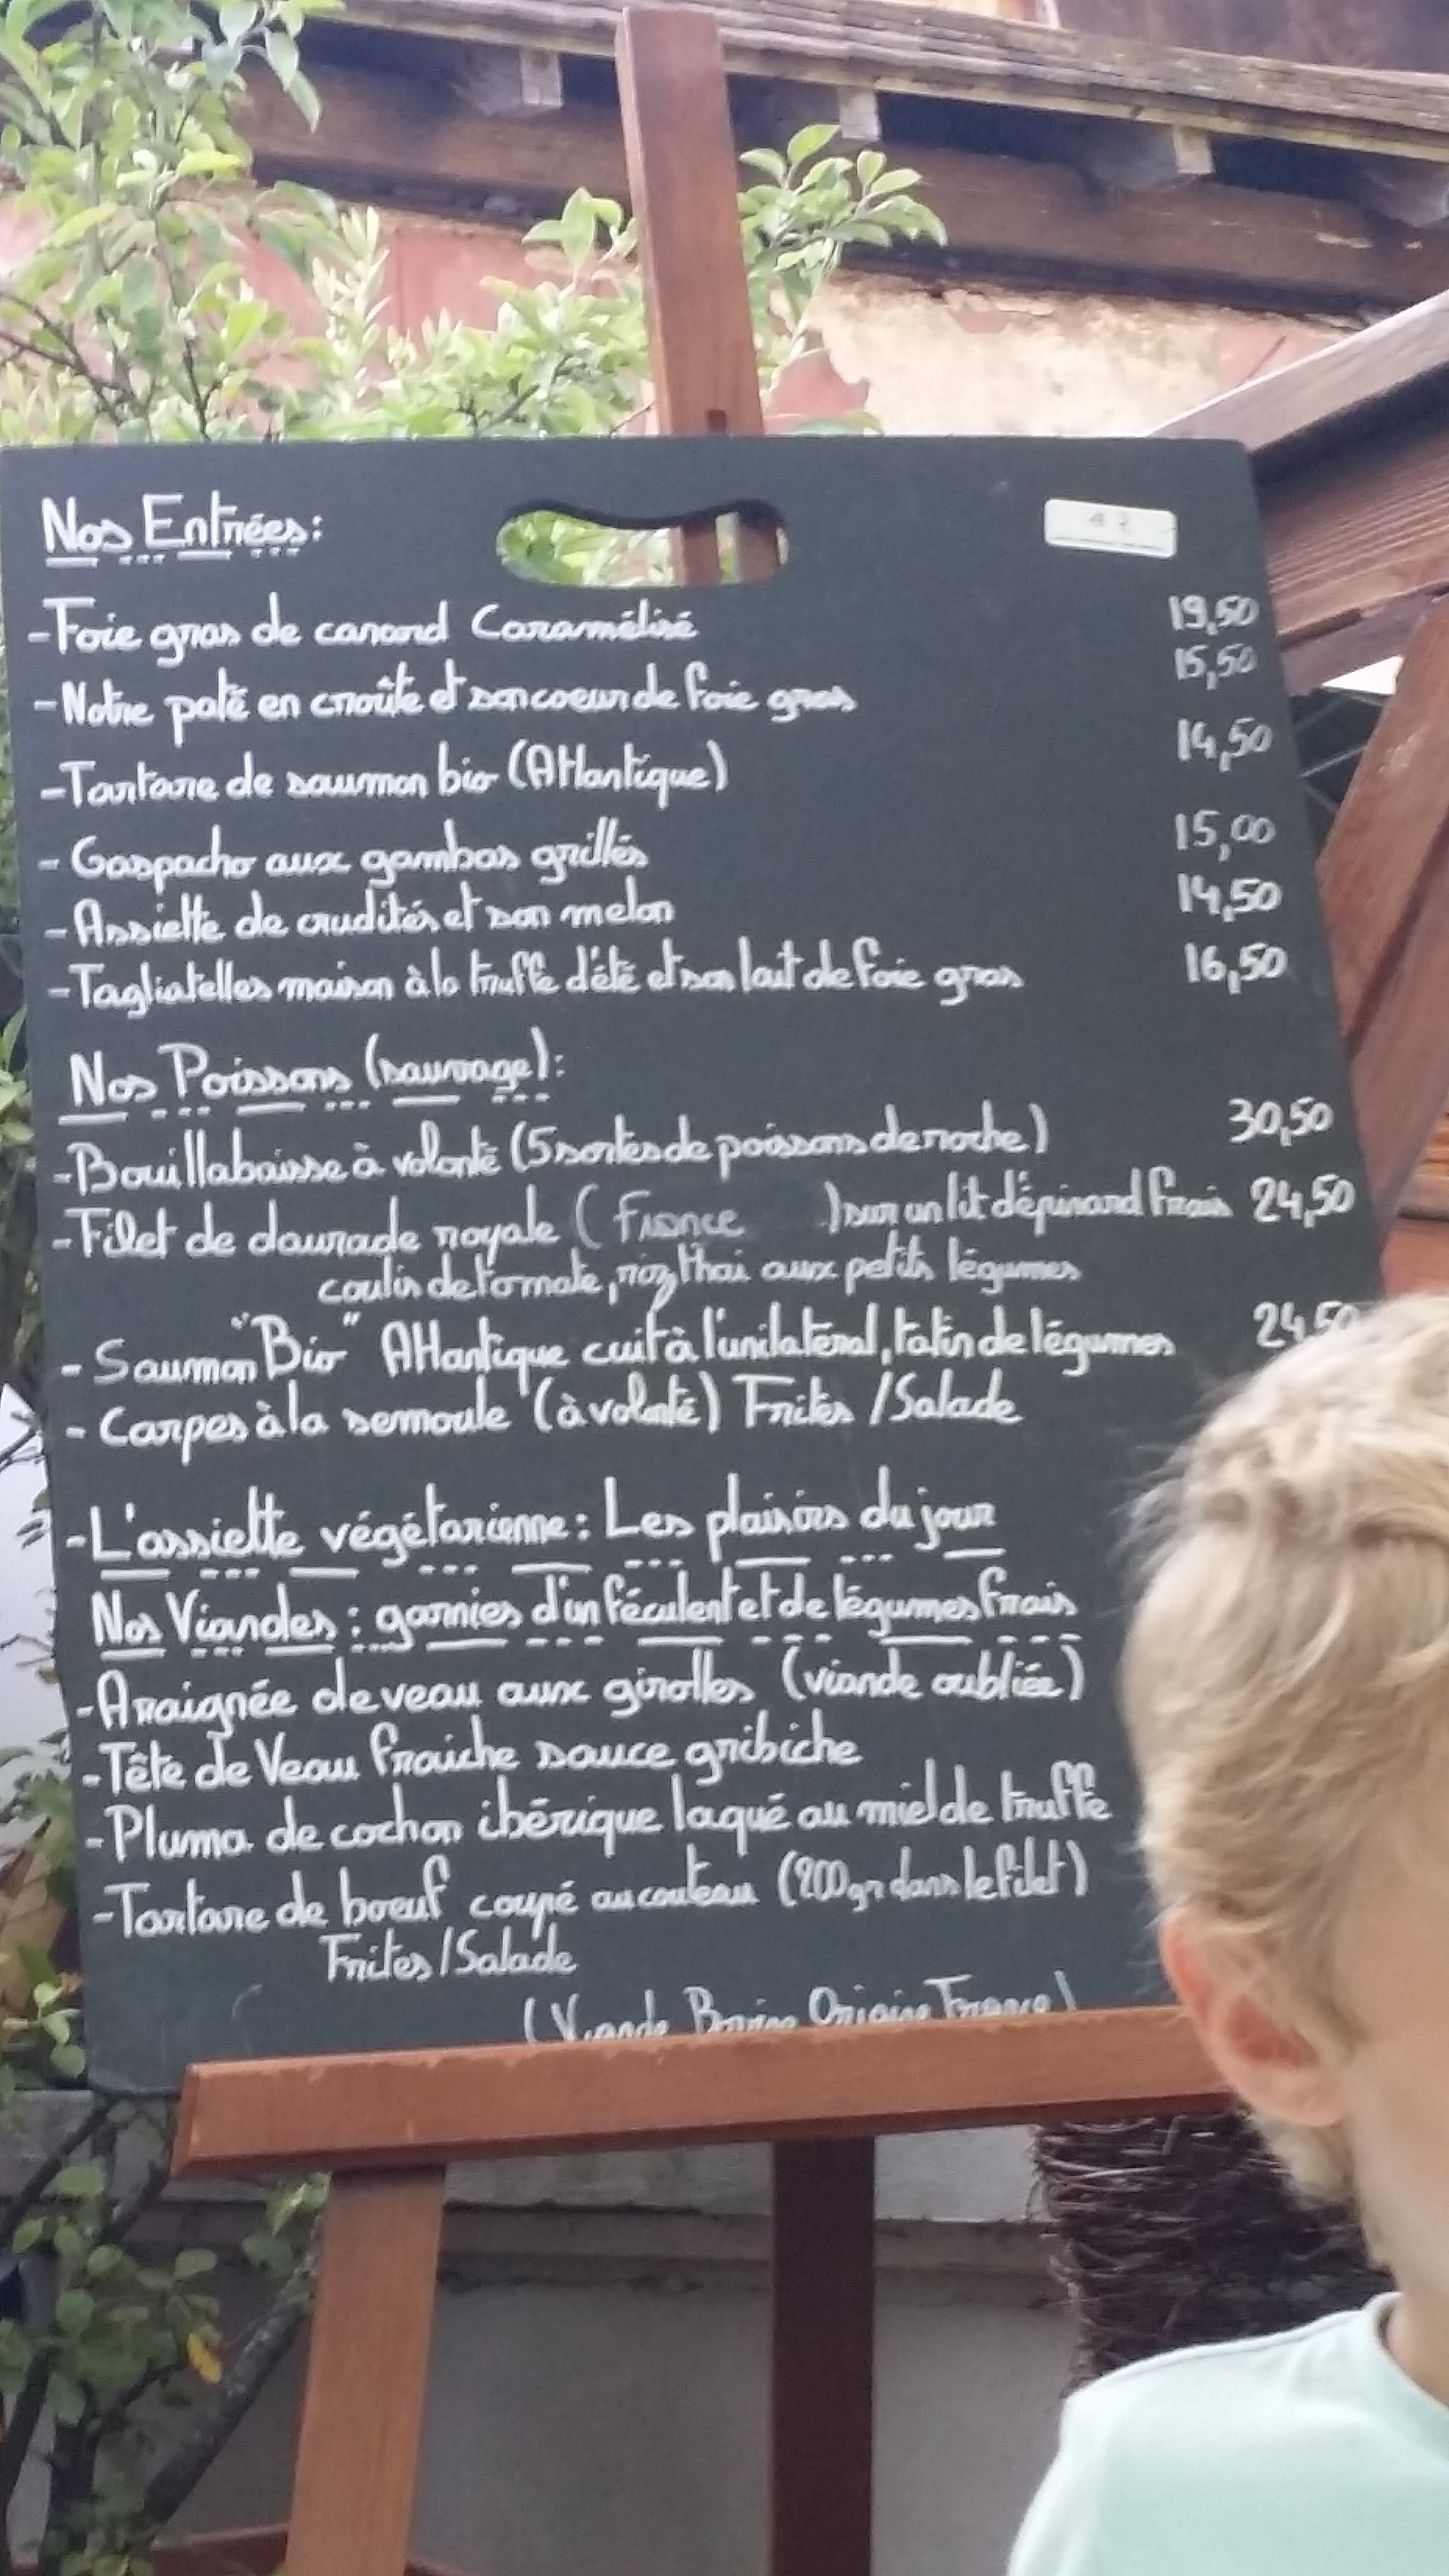 Nos Entrées:
-Foie gras de canard Caramélisé 19,50
-Notre paté en croûte et son coeur de foie gras 15,50
-Tartare de saumon bio (Atlantique) 14,50
- Gaspacho aux gambas grillés 15,00
- Assiette de crudités et son melon 14,50
-Tagliatelles maison à la truffe d'été et son lait de foie gras 16,50
Nos Poissons (sauvage):
-Bouillabaisse à volonté (5 sortes de poissons de roche) 30,50
-Filet de daurade royale (France ) sur un lit d'épinard frais 24,50
coulis de tomate, riz thaï aux petits légumes
- Saumon "Bio" Atlantique cuit à l'unilatéral, tatin de légumes 24,50
- Carpes à la semoule (à volonté) Frites /Salade
-L'assiette végétarienne: Les plaisirs du jour
Nos Viandes: garnies d'un féculent et de légumes frais
-Araignée de veau aux girolles (viande oubliée)
-Tête de Veau fraiche sauce gribiche
-Pluma de cochon ibérique laqué au miel de truffe
-Tartare de boeuf coupé au couteau (200gr dans le filet)
Frites/Salade
(Viande Bovine Origine France)